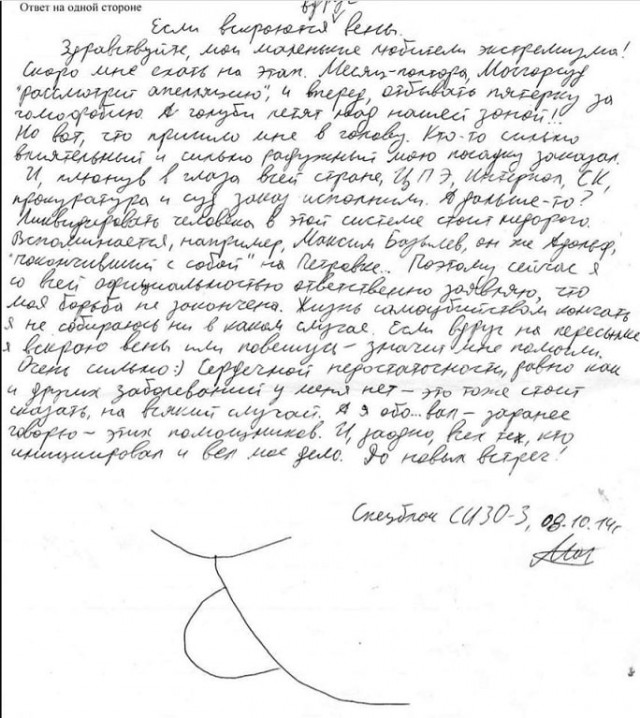 Ответ на одной стороне
вдруг
Если вскроются вены.
Здравствуйте, мои маленькие любители экстремизма!
Скоро мне ехать на этап. Месяц-полтора, Мосгорсуд
"рассмотрит апелляцию", и вперед, отбывать пятерку за
гомофобию. А голуби летят над нашей зоной!!
Но вот, что пришло мне в голову. Кто-то сильно
влиятельный и сильно радужный мою посадку заказал.
И, плюнув в глаза всей стране, ЦПЭ, Интерпол, СК,
прокуратура и суд заказ исполнили. А дальше-то?
Ликвидировать человека в этой системе стоит недорого.
Вспоминается, например, Максим Базылев, он же Адольф,
"покончивший с собой" на Петровке.. Поэтому сейчас я
со всей официальностью ответственно заявляю, что
моя борьба не закончена. Жизнь самоубийством кончать
я не собираюсь ни в каком случае. Если вдруг на пересылке
я вскрою вены или повешусь – значит мне помогли.
Очень сильно :) Сердечной недостаточности, равно как
и других заболеваний у меня нет – это тоже стоит
сказать, на всякий случай. А я обо...вал – заранее
говорю – этих помощников. И, заодно, всех тех, кто
инициировал и вел мое дело. До новых встреч!
Спецблок СИЗО-3, 08.10.14г